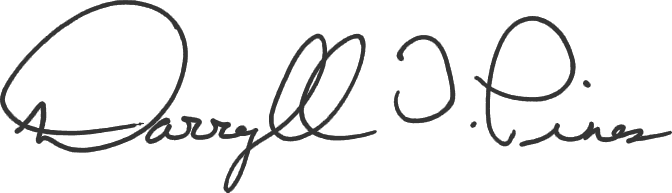 Darryll J. Pines